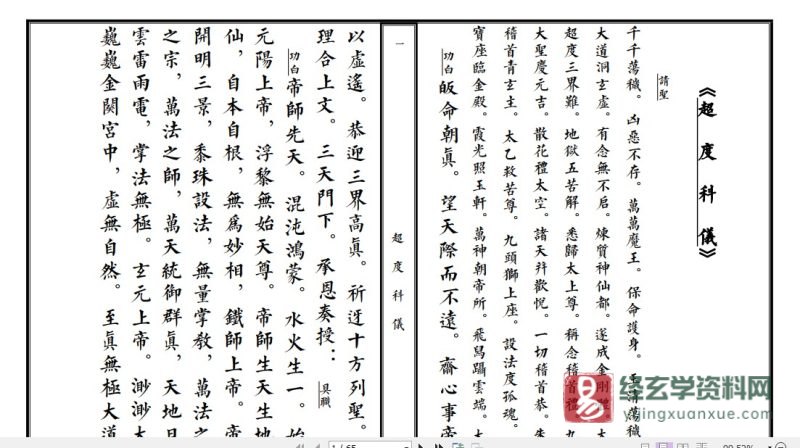 《超度科儀》
請聖
千千蕩穢。凶惡不存。萬萬魔王。保命護身。玉清蕩穢
大道洞玄虛。有念無不启。煉質神仙都。遂成金剛體。大
超度三界難。地獄五苦解。悉歸太上尊。稱念稽首禮。九
大聖慶元吉。散花禮太空。諸天并歡悅。一切稽首恭。朱
稽首青玄主。太乙救苦尊。九頭獅上座。設法度孤魂。
寶座臨金殿。霞光照玉軒。萬神朝帝所。飛舄躡雲端。大
功白 皈命朝眞。望天際而不遠。齋心事帝
一
超度科儀
以虛遙。恭迎三界高眞。祈迓十方列聖。
理合上文。三天門下。承恩奏授：具職
功白 帝師先天。混沌鴻蒙。水火生一。始
元陽上帝，浮黎無始天尊。帝師生天生地
仙，自本自根，無爲妙相，鐵師上帝。帝
開明三景，黍珠設法，無量掌教，萬法之
之宗，萬法之師，萬天統御群眞，天地日
雲雷雨電，掌法無極。玄元上帝。渺渺大
巍巍金闕宮中，虛無自然。至眞無極大道
易
绎玄学资料网
yijingxuanxue.com
1 / 65